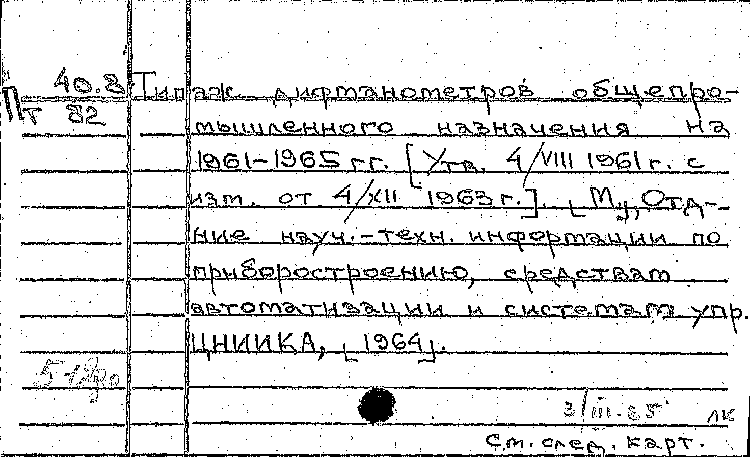 40.8 Типаж дифманометров общепро-
Пт 82 мышленного назначения на
1961-1965 гг. [Утв. 4/VIII 1961 г. с
изм. от 4/XII 1963 г.]. [М.], Отд-
ние науч.-техн. информации по
приборостроению, средствам
автоматизации и системам упр.
ЦНИИКА, [1964].
3/III-65 ЛК
См. след. карт.